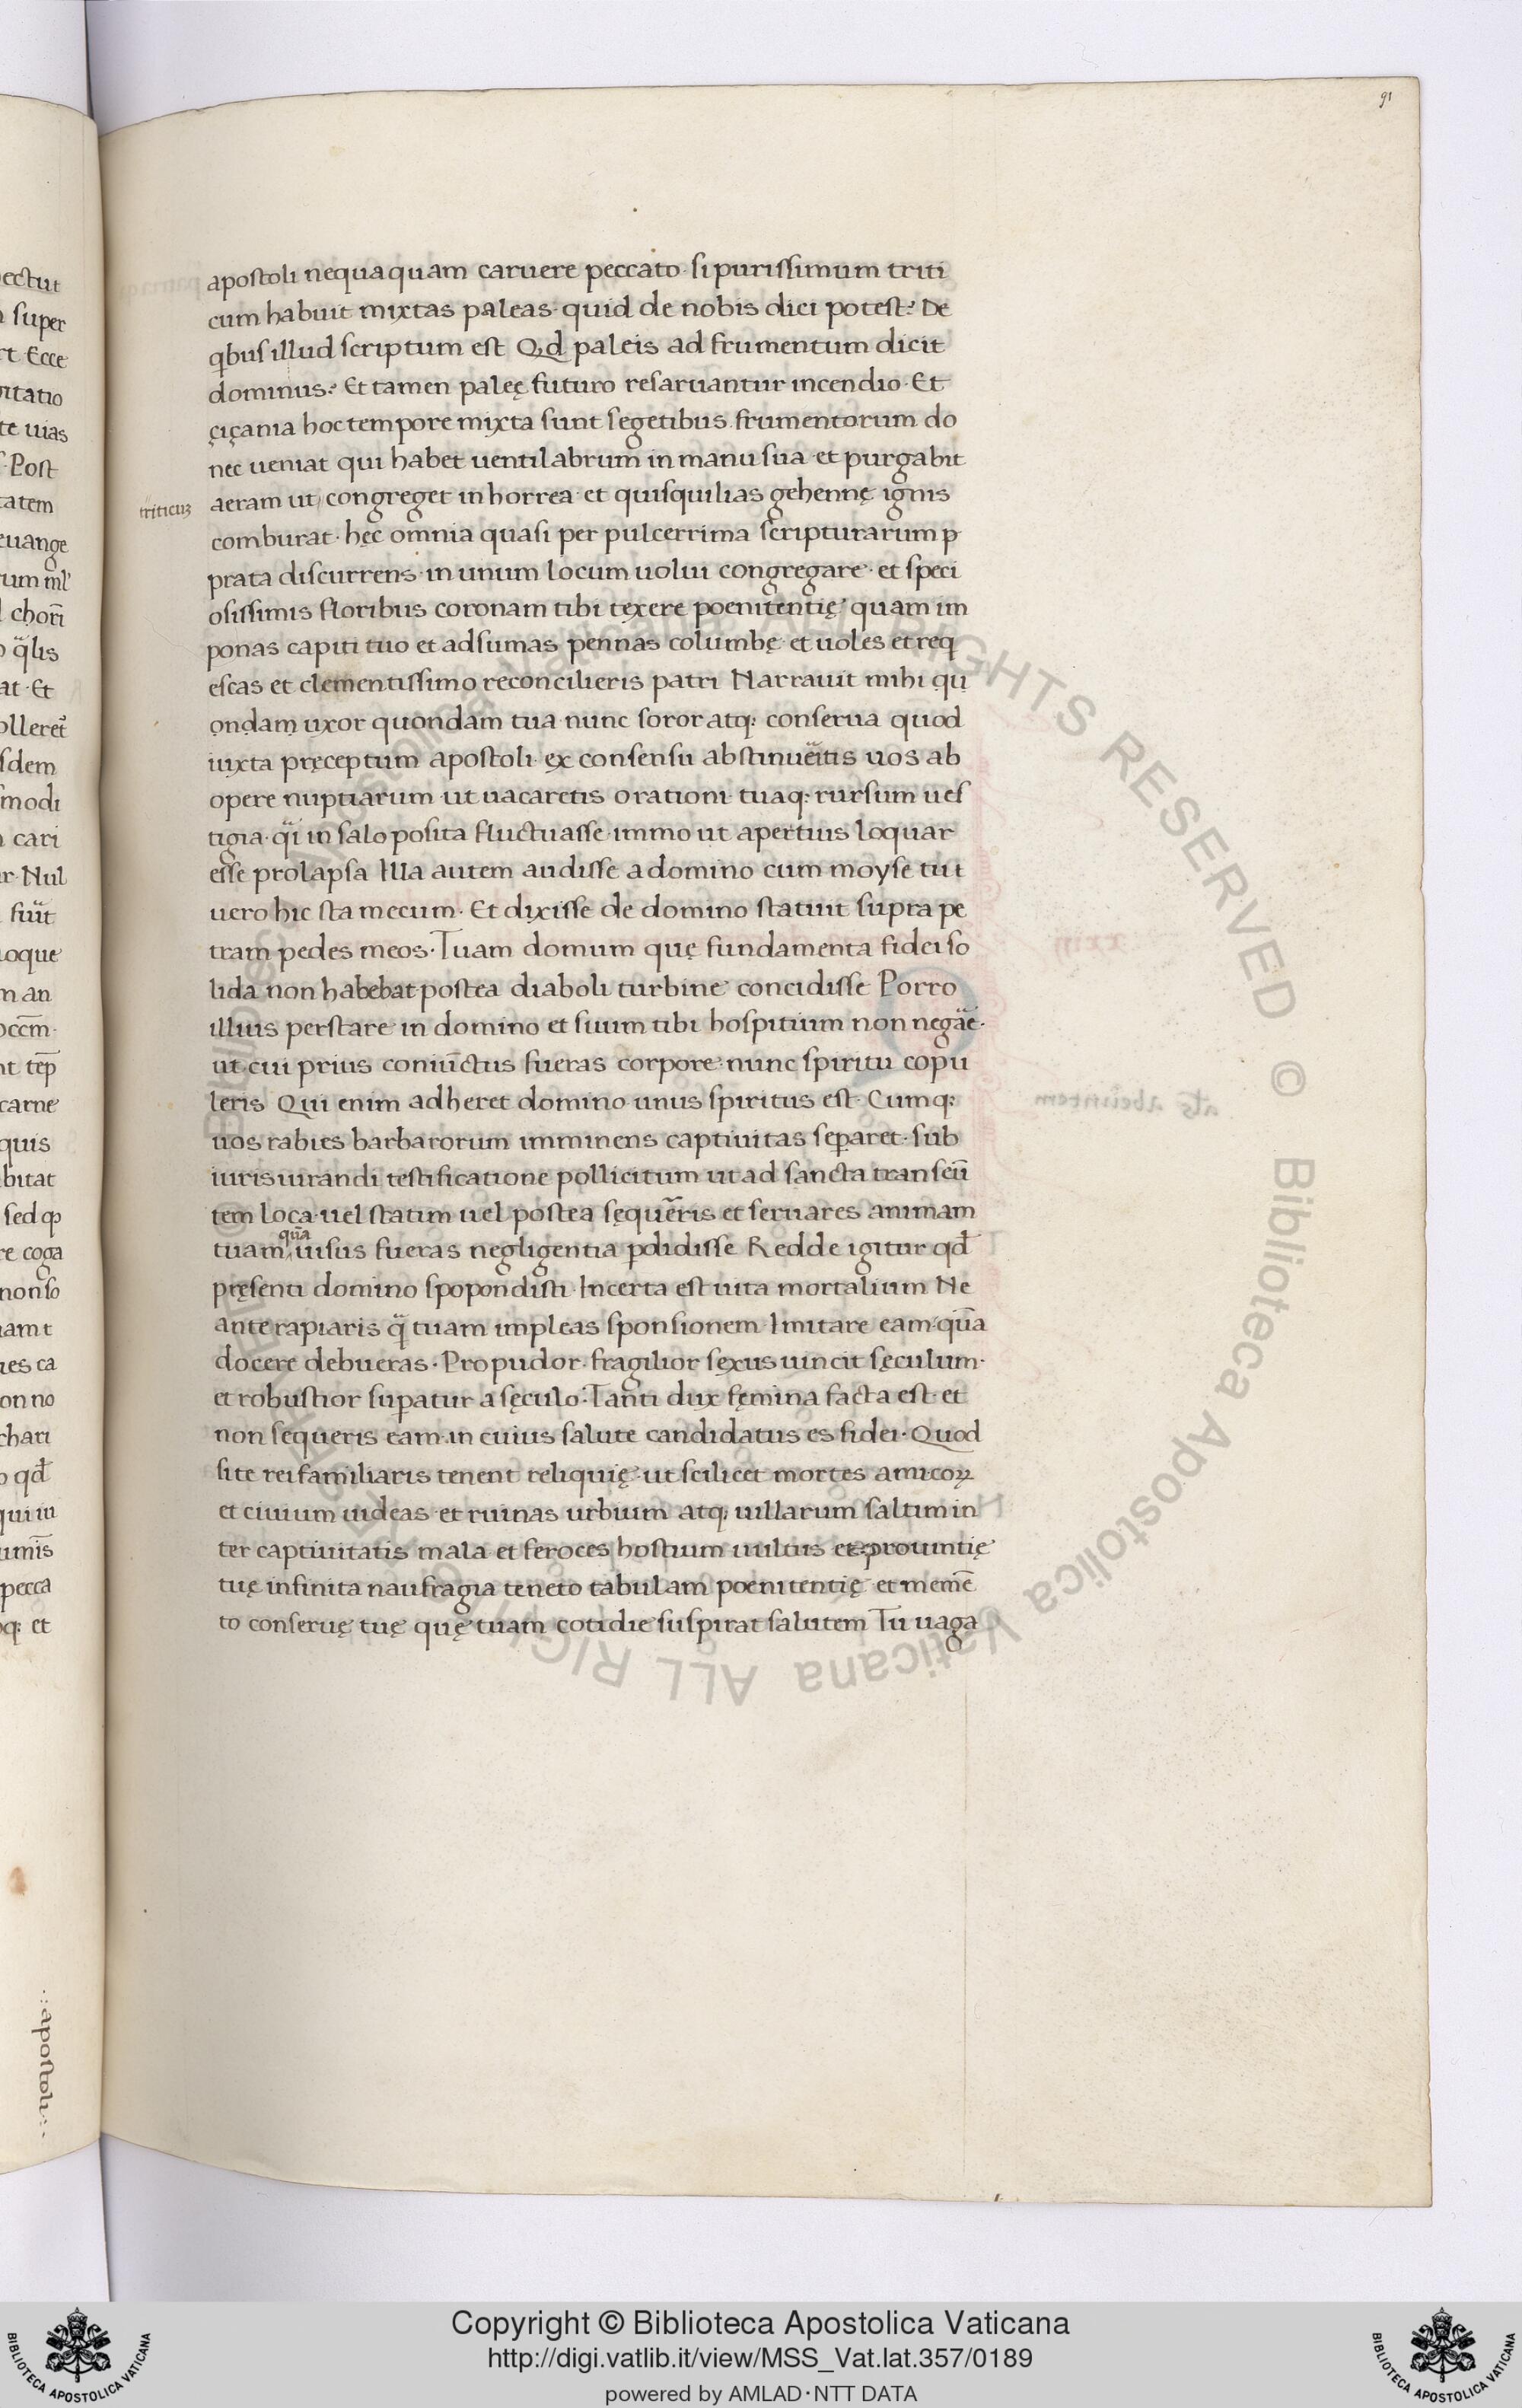 91
apostoli nequaquam caruere peccato· si purissimum triti
cum habuit mixtas paleas· quid de nobis dici potest? De
qbus illud scriptum est Qd paleis ad frumentum dicit
dominus? Et tamen paleę futuro resaruantur incendio· Et
çiçania hoc tempore mixta sunt segetibus frumentorum do
nec ueniat qui habet uentilabrum in manu sua et purgabit
triticuʒ
aeram ut congreget in horrea· et quisquilias gehennę ignis
comburat· hęc omnia quasi per pulcerrima scripturarum p
prata discurrens· in unum locum uolui congregare· et speci
osissimis floribus coronam tibi texere poenitentię· quam im
ponas capiti tuo et adsumas pennas columbę· et uoles et req
escas et clementissimo reconcilieris patri Narrauit mihi qu
ondam uxor quondam tua nunc soror atq: conserua quod
iuxta pręceptum apostoli· ex consensu abstinueitis uos ab
opere nuptiarum ut uacaretis orationi· tuaq: rursum ues
tigia· qi in salo posita fluctuasse· immo ut apertius loquar
esse prolapsa Illa autem audisse a domino cum moyse tu t
uero hic sta mecum· Et dixisse de domino statuit supra pe
tram pedes meos· Tuam domum quę fundamenta fidei so
lida non habebat postea diaboli turbine concidisse Porro
illius perstare in domino et suum tibi hospitium non negae·
ut cui prius coniūctus fueras corpore· nunc spiritu copu
leris Qui enim adheret domino unus spiritus est· Cumq:
uos rabies barbarorum imminens captiuitas separet· sub
iurisiurandi testificatione pollicitum ut ad sancta transeū
tem loca· uel statim uel postea sęqueris et seruares animam
quā
tuam uisus fueras negligentia pdidisse Redde igitur qđ
pręsenti domino spopondisti· Incerta est uita mortalium Ne
ante rapiaris q tuam impleas sponsionem Imitare eam· quā
docere debueras· Pro pudor· fragilior sexus uincit sęculum·
et robustior supatur a sęculo· Tanti dux fęmina facta est· et
non sequeris eam· in cuius salute candidatus es fidei· Quod
si te rei familiaris tenent reliquię· ut scilicet mortes amicoꝝ
et ciuium uideas· et ruinas urbium atq; uillarum saltim in
ter captiuitatis mala et feroces hostium uultus et prouintię
tuę infinita naufragia teneto tabulam poenitentię et memē
to conseruę tuę quę tuam cotidie suspirat salutem Tu uaga
ectut
super
Ecce
itatio
te uias
Post
tatem
euange
chorī
qlis
at· Et
sdem
modi
cari
Nul
oque
an
carne
quis
bitat
coga
non so
ca
no
chari
qđ
pecca
et
·:apostoli:·
© Biblioteca Apostolica Vaticana ALL RIGHTS RESERVED
Copyright © Biblioteca Apostolica Vaticana
http://digi.vatlib.it/view/MSS_Vat.lat.357/0189
powered by AMLAD·NTT DATA
BIBLIOTECA APOSTOLICA VATICANA
BIBLIOTECA APOSTOLICA VATICANA